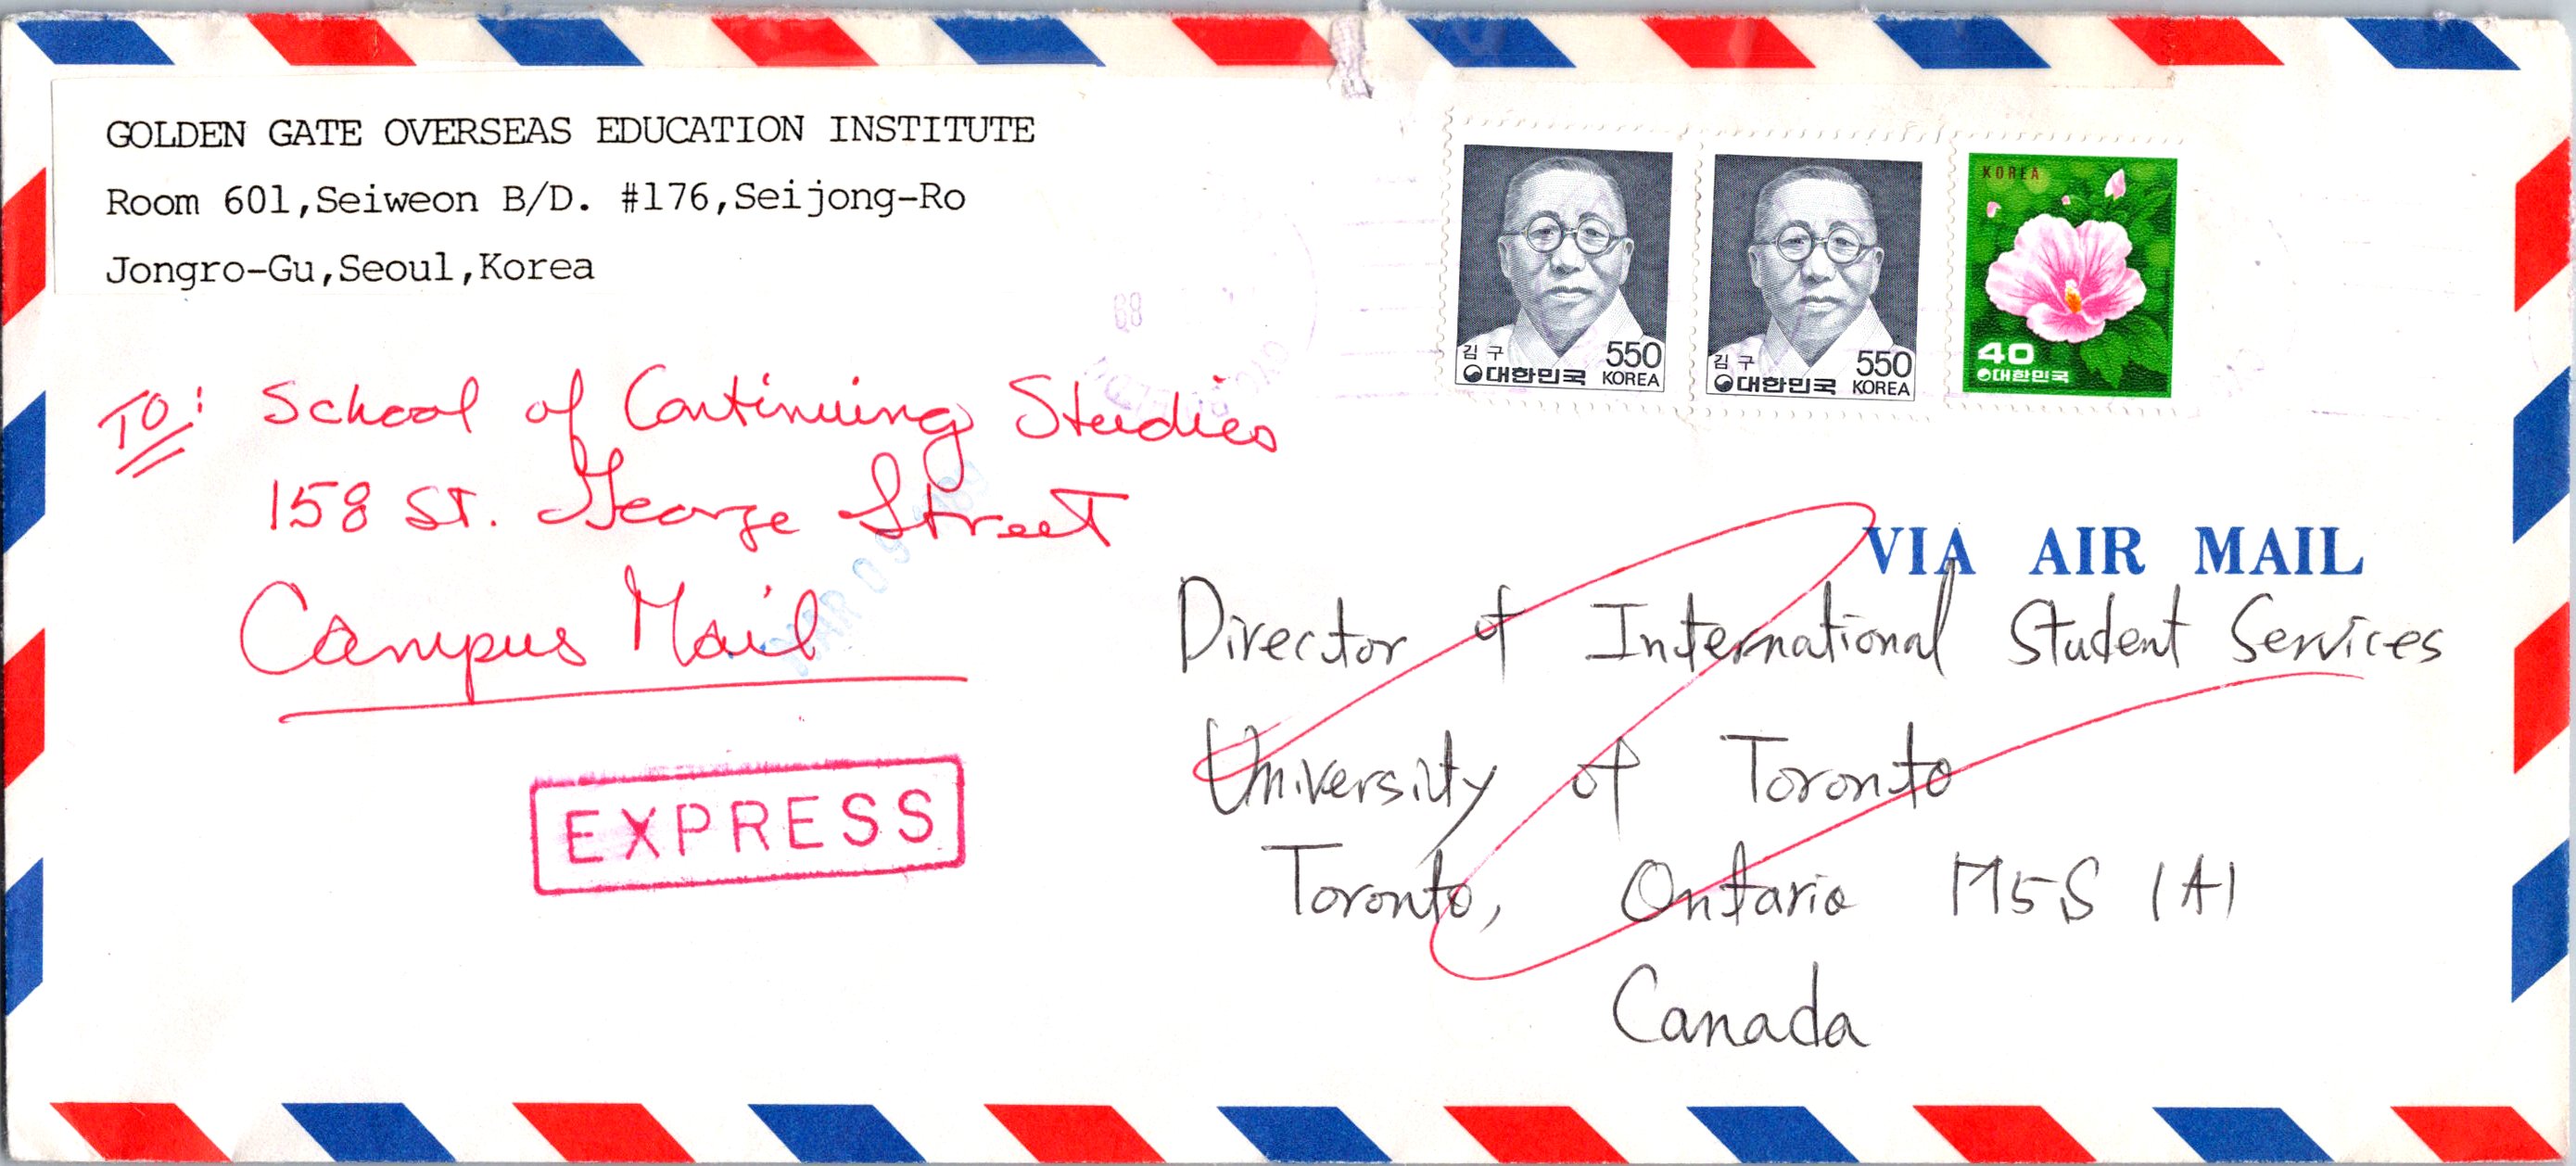 GOLDEN GATE OVERSEAS EDUCATION INSTITUTE
Room 601,Seiweon B/D. #176,Seijong-Ro
Jongro-Gu,Seoul,Korea
김구 550
대한민국 KOREA
김구 550
대한민국 KOREA
KOREA
40
대한민국
TO: School of Continuing Studies
158 St. George Street
Campus Mail
MAR 09 1989
EXPRESS
VIA AIR MAIL
Director of International Student Services
University of Toronto
Toronto, Ontario M5S 1A1
Canada